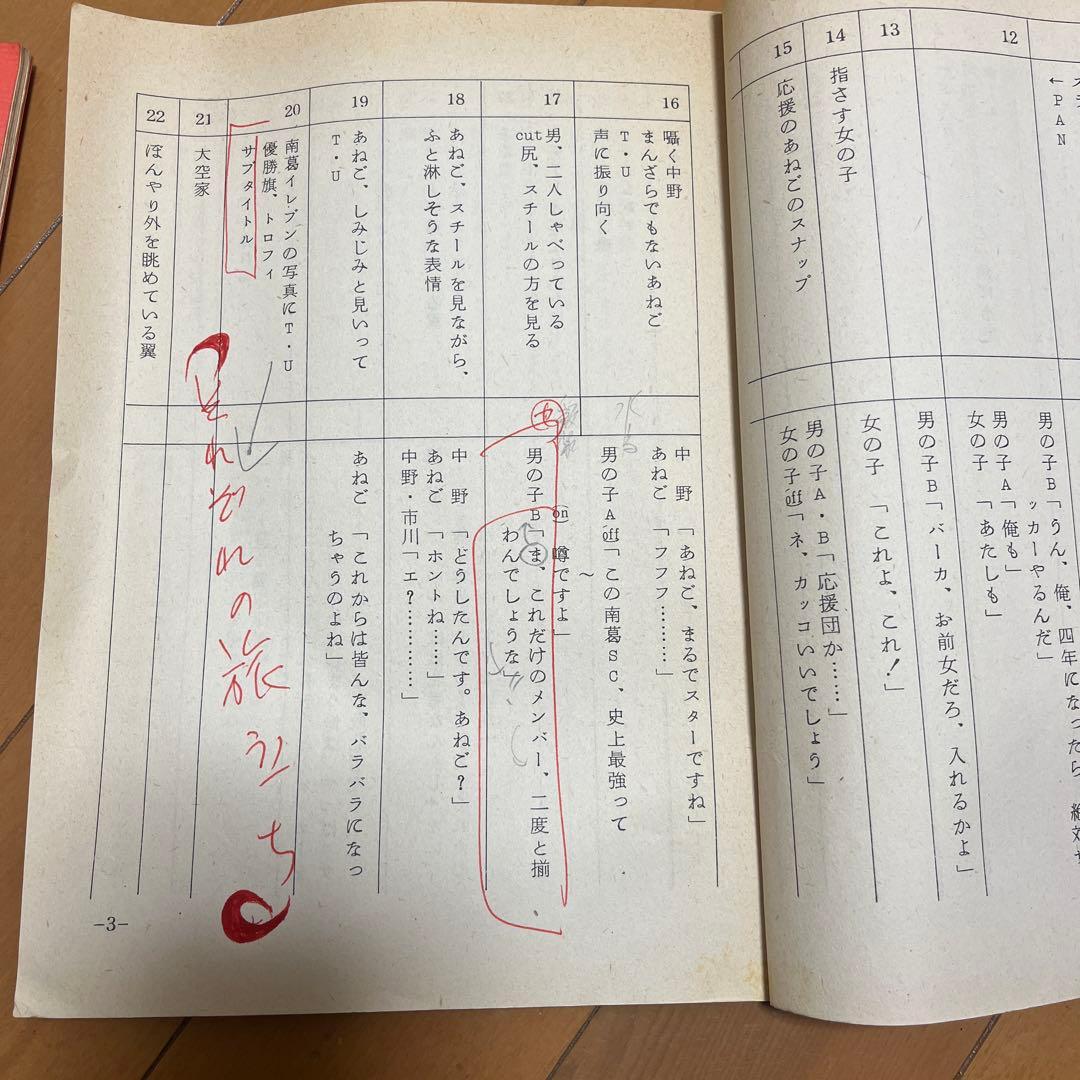 12
←PAN
男の子B「うん、俺、四年になったら、絶対サ
ッカーやるんだ」
男の子A「俺も」
女の子　「あたしも」
男の子B「バーカ、お前女だろ、入れるかよ」
13
女の子　「これよ、これ！」
14
指さす女の子
男の子A・B「応援団か……」
15
応援のあねごのスナップ
女の子off「ネ、カッコいいでしょう」
16
囁く中野
まんざらでもないあねご
T・U
声に振り向く
中　野　「あねご、まるでスターですね」
あねご　「フフフ………」
男の子A off「この南葛SC、史上最強って
〜
on　噂ですよ」
17
男、二人しゃべっている
cut尻、スチールの方を見る
男の子B「ま、これだけのメンバー、二度と揃
わんでしょうな」
18
あねご、スチールを見ながら、
ふと淋しそうな表情
中　野　「どうしたんです。あねご？」
あねご　「ホントね……」
中野・市川「エ？…………」
19
あねご、しみじみと見いって
T・U
あねご　「これからは皆んな、バラバラになっ
ちゃうのよね」
20
南葛イレブンの写真にT・U
優勝旗、トロフィ
サブタイトル
それぞれの旅立ち
21
大空家
22
ぼんやり外を眺めている翼
-3-